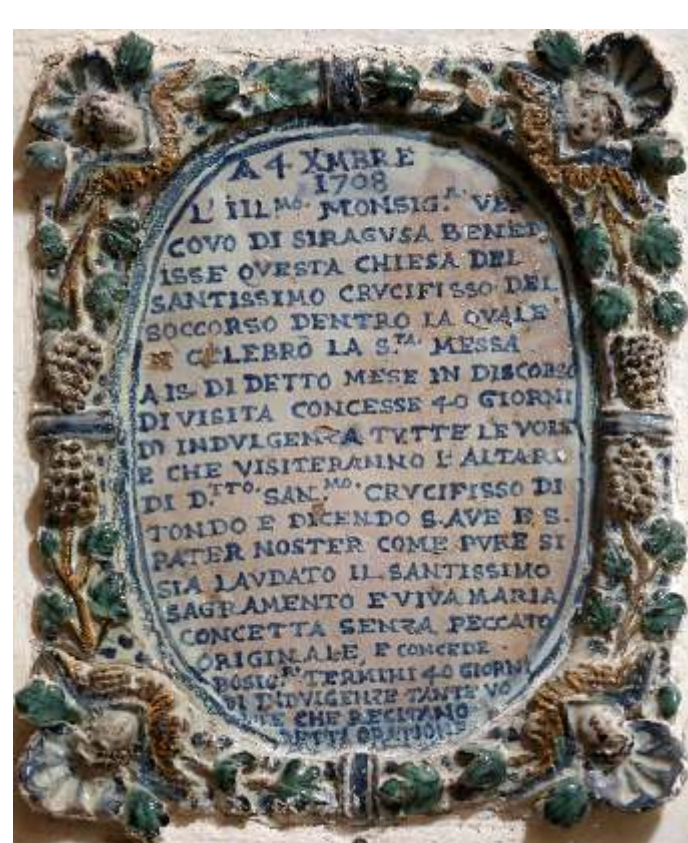 A 4 XMBRE
1708
L' ILL.MO. MONSIG.R. VES
COVO DI SIRAGVSA BENED
ISSE QVESTA CHIESA DEL
SANTISSIMO CRVCIFISSO DEL
SOCCORSO DENTRO LA QVALE
CELEBRÒ LA S.TA. MESSA
A IS. DI DETTO MESE IN DISCORSO
DI VISITA CONCESSE 40 GIORNI
DI INDVLGENZA TVTTE LE VOLT
E CHE VISITERANNO L'ALTARE
DI D.TTO. SAN.MO. CRVCIFISSO DI
TONDO E DICENDO 5. AVE E 5.
PATER NOSTER COME PVRE SI
SIA LAVDATO IL SANTISSIMO
SAGRAMENTO E VIVA MARIA
CONCETTA SENZA PECCATO
ORIGINALE, E CONCEDE
TERMINI 40 GIORNI
DI INDVLGENZE TANTE VO
LTE CHE RECITANO
DETTI ORATIONE